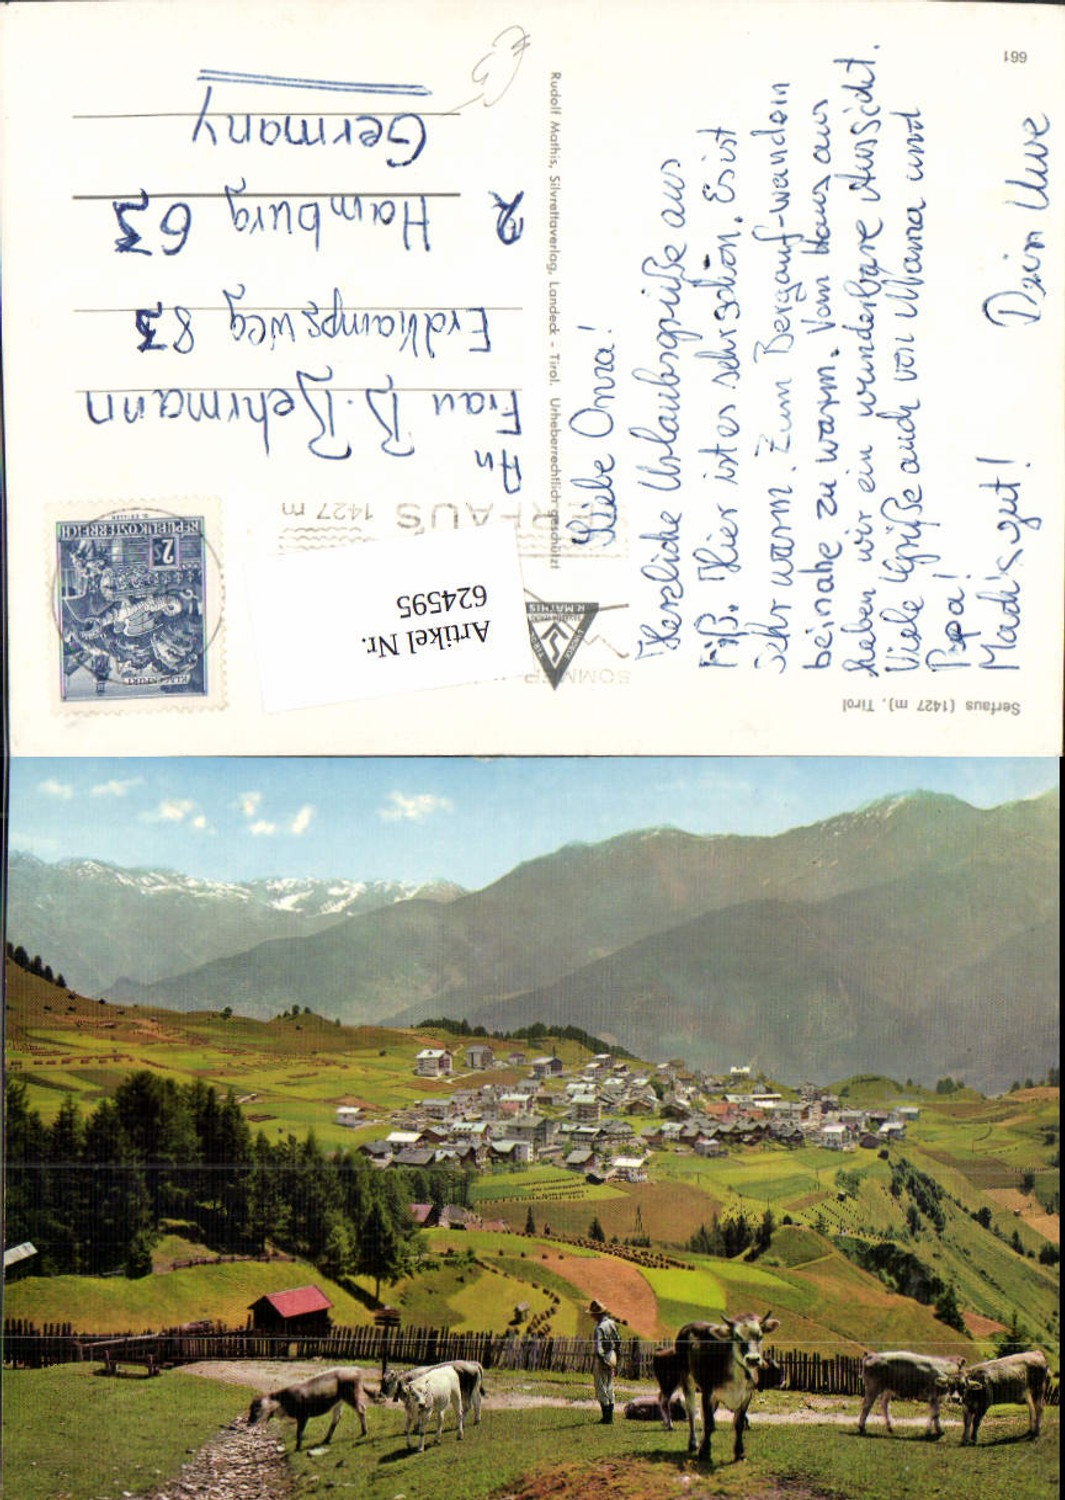 661
Liebe Oma!
Herzliche Urlaubsgrüße aus
Fiß. Hier ist es sehr schön. Es ist
sehr warm. Zum Bergauf-wandern
beinahe zu warm. Vom Haus aus
haben wir ein wunderbare Aussicht.
Viele Grüße auch von Mama und
Papa!
Mach's gut!
Dein Uwe
Serfaus (1427 m), Tirol
Rudolf Mathis, Silvrettaverlag, Landeck - Tirol. Urheberrechtlich geschützt
R. MATHIS
SOMMER
SERFAUS 1427 m
REPUBLIK ÖSTERREICH
2S
KLAGENFURT
Artikel Nr.
624595
An
Frau B. Behrmann
Erdkampsweg 83
2 Hamburg 63
Germany